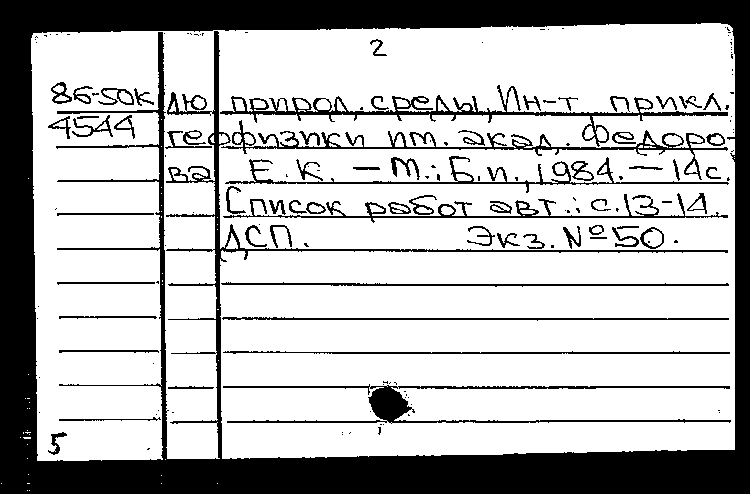 2
86-50К лю природ. среды, Ин-т прикл.
4544 геофизики им. акад. Федоро-
ва Е.К. — М.: Б.и., 1984. — 14с.
Список работ авт.: с.13-14.
ДСП. Экз. №50.
5